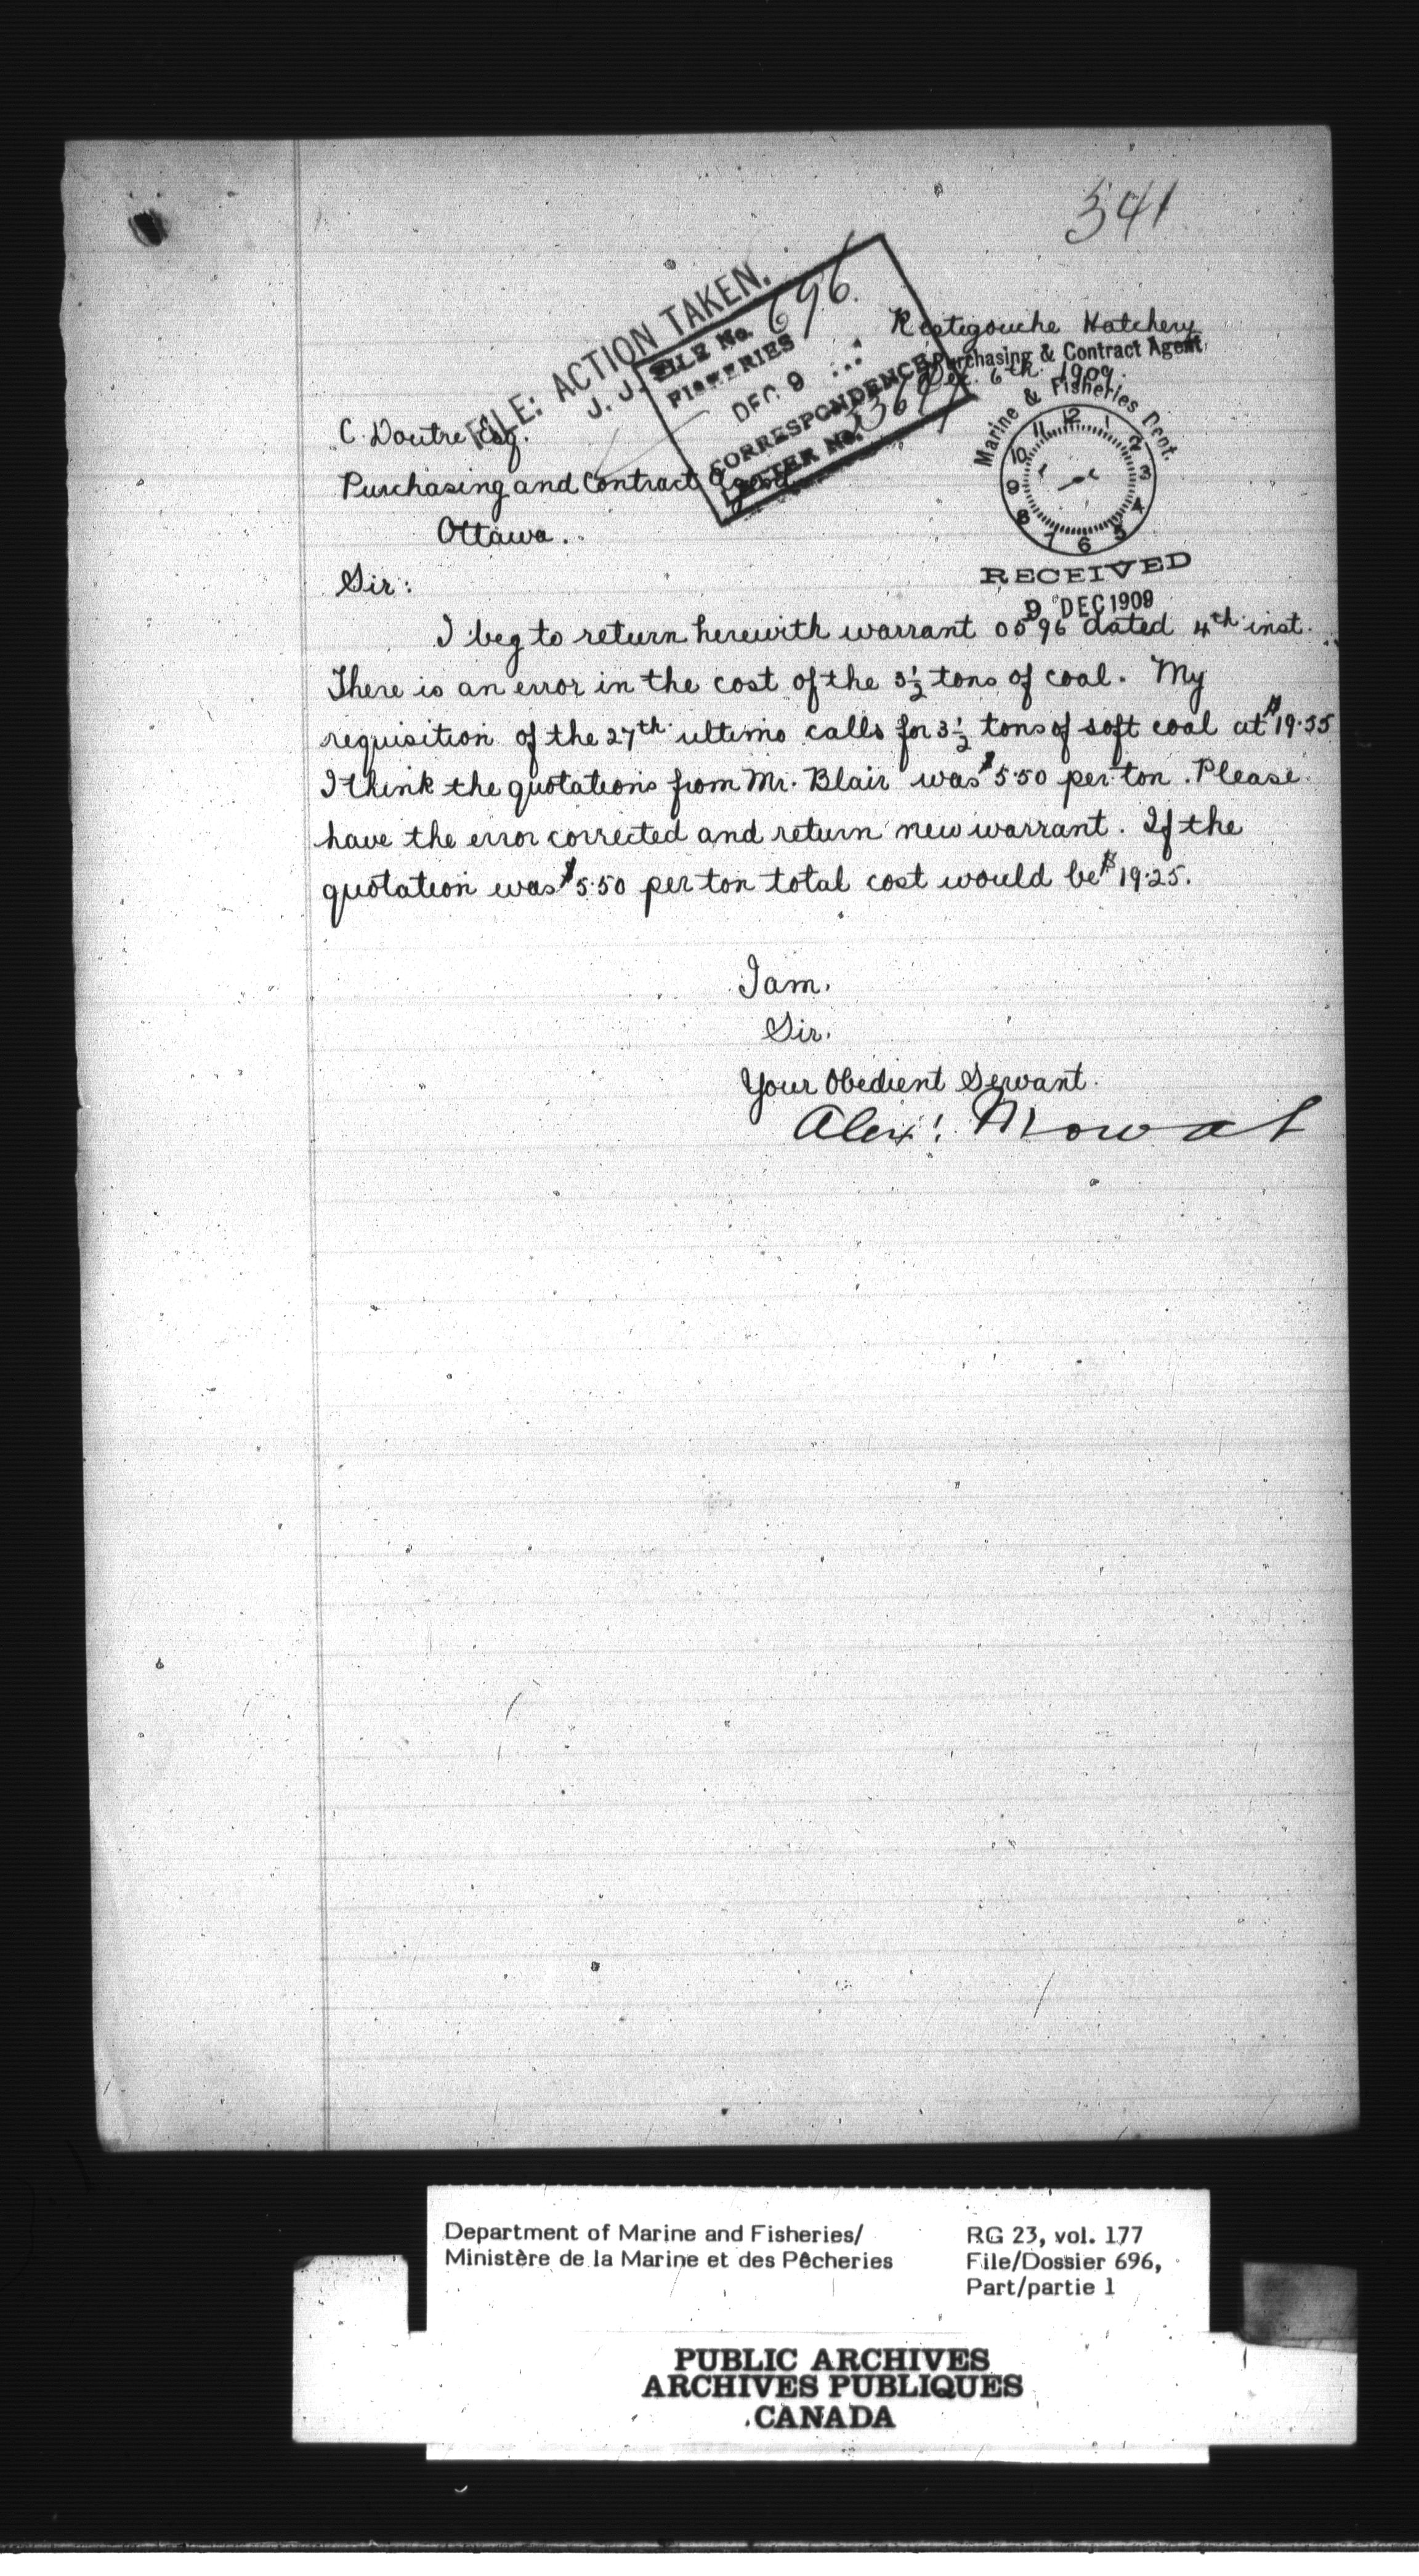 341
FILE: ACTION TAKEN.
J. J.
FILE No. 696.
FISHERIES
DEC 9
CORRESPONDENCE
LETTER No.
Restigouche Hatchery
Purchasing & Contract Agent,
Dec. 6th. 1909.
Marine & Fisheries Dept.
12 1 2 3 4 5 6 7 8 9 10 11
RECEIVED
9 DEC 1909
C. Doutre Esq.
Purchasing and Contract Agent
Ottawa.
Sir:
I beg to return herewith warrant 0596 dated 4th inst.
There is an error in the cost of the 3½ tons of coal. My
requisition of the 27th ultimo calls for 3½ tons of soft coal at $19.55
I think the quotations from Mr. Blair was $5.50 per ton. Please
have the error corrected and return new warrant. If the
quotation was $5.50 per ton total cost would be $19.25.
I am,
Sir,
Your Obedient Servant.
Alex! Mowat
Department of Marine and Fisheries/
Ministère de la Marine et des Pêcheries
RG 23, vol. 177
File/Dossier 696,
Part/partie 1
PUBLIC ARCHIVES
ARCHIVES PUBLIQUES
CANADA